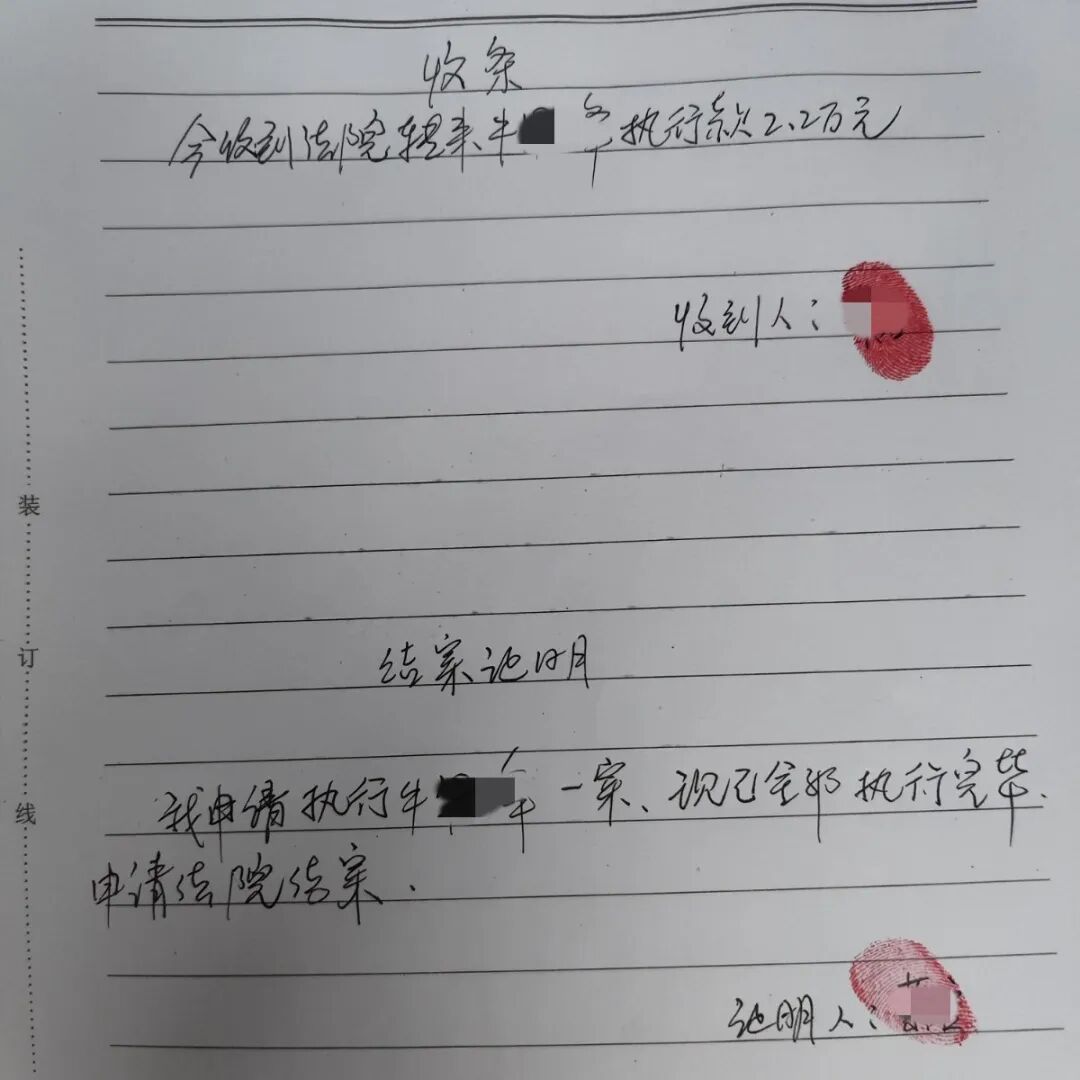 收条
今收到法院转来牛 军执行款2.2万元
收到人:
结案证明
我申请执行牛 军一案、现已全部执行完毕.
申请法院结案.
证明人:
装
订
线